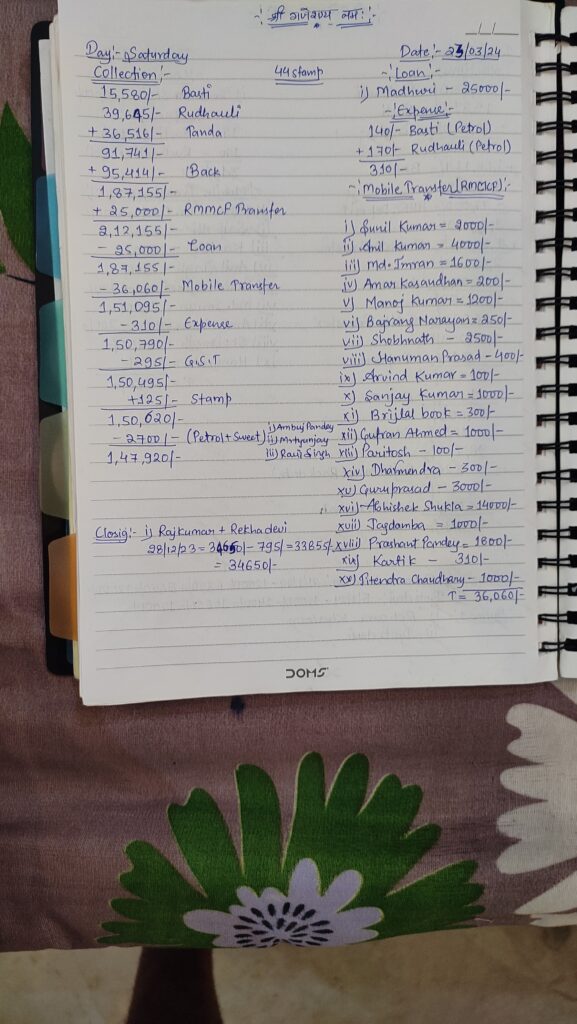 श्री गणेशाय नमः
Day:- Saturday
Date:- 23/03/24
Collection:-
44 stamp
15,580/- Basti
39,645/- Rudhauli
+ 36,516/- Tanda
91,741/-
+ 95,414/- (Back)
1,87,155/-
+ 25,000/- RMMCP Transfer
2,12,155/-
- 25,000/- Loan
1,87,155/-
- 36,060/- Mobile Transfer
1,51,095/-
- 310/- Expense
1,50,790/-
- 295/- G.S.T
1,50,495/-
+125/- Stamp
1,50,620/-
- 2700/- (Petrol + Sweet) i) Ambuj Pandey
ii) Mrtyunjay
iii) Ravi Singh
1,47,920/-
Closig:- i) Rajkumar + Rekhadevi
28/12/23 = 34650/- 795/- = 33855/-
= 34650/-
Loan:-
i) Madhuri - 25000/-
Expense:-
140/- Basti (Petrol)
+ 170/- Rudhauli (Petrol)
310/-
Mobile Transfer (RMMCP):-
i) Sunil Kumar = 2000/-
ii) Anil Kumar = 4000/-
iii) Md. Imran = 1600/-
iv) Aman Kasaudhan = 200/-
v) Manoj Kumar = 1200/-
vi) Bajrang Narayan = 250/-
vii) Shobhnath - 2500/-
viii) Hanuman Prasad - 400/-
ix) Arvind Kumar = 100/-
x) Sanjay Kumar = 1000/-
xi) Brijlal book = 300/-
xii) Gufran Ahmed = 1000/-
xiii) Paritosh - 100/-
xiv) Dharmendra - 300/-
xv) Guruprasad - 3000/-
xvi) Abhishek Shukla = 14000/-
xvii) Jagdamba = 1000/-
xviii) Prashant Pandey = 1800/-
xix) Kartik - 310/-
xx) Jitendra Chaudhary - 1000/-
T = 36,060/-
DOMS